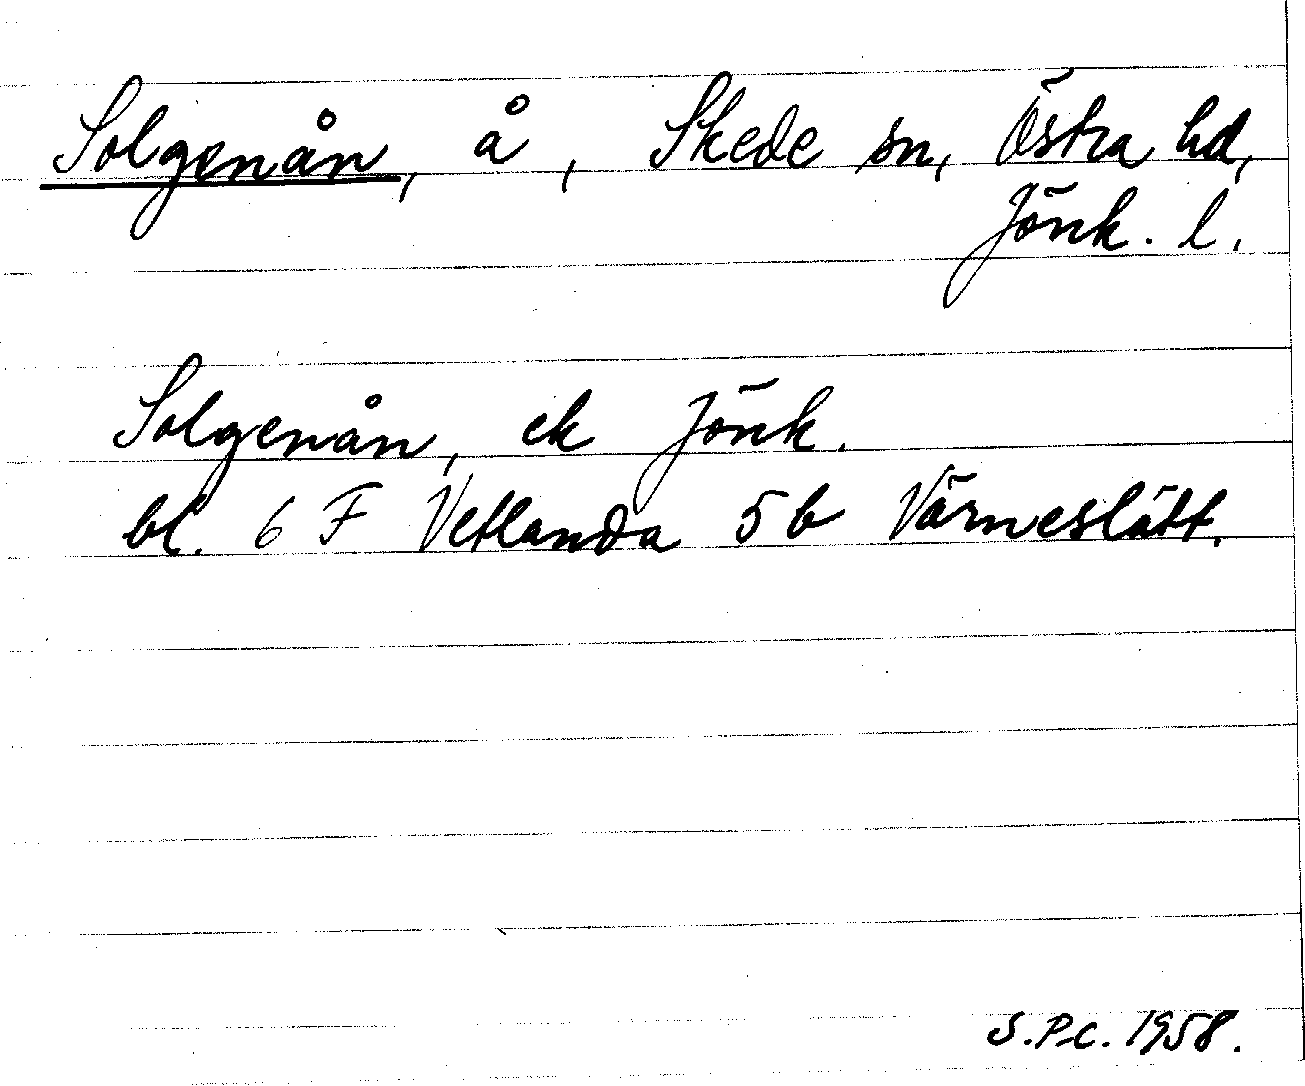 Solgenån, å, Skede sn, Östra hd,
Jönk. l.
Solgenån, ek Jönk.
bl. 6 F Vetlanda 5b Värneslätt.
S.P-C. 1958.